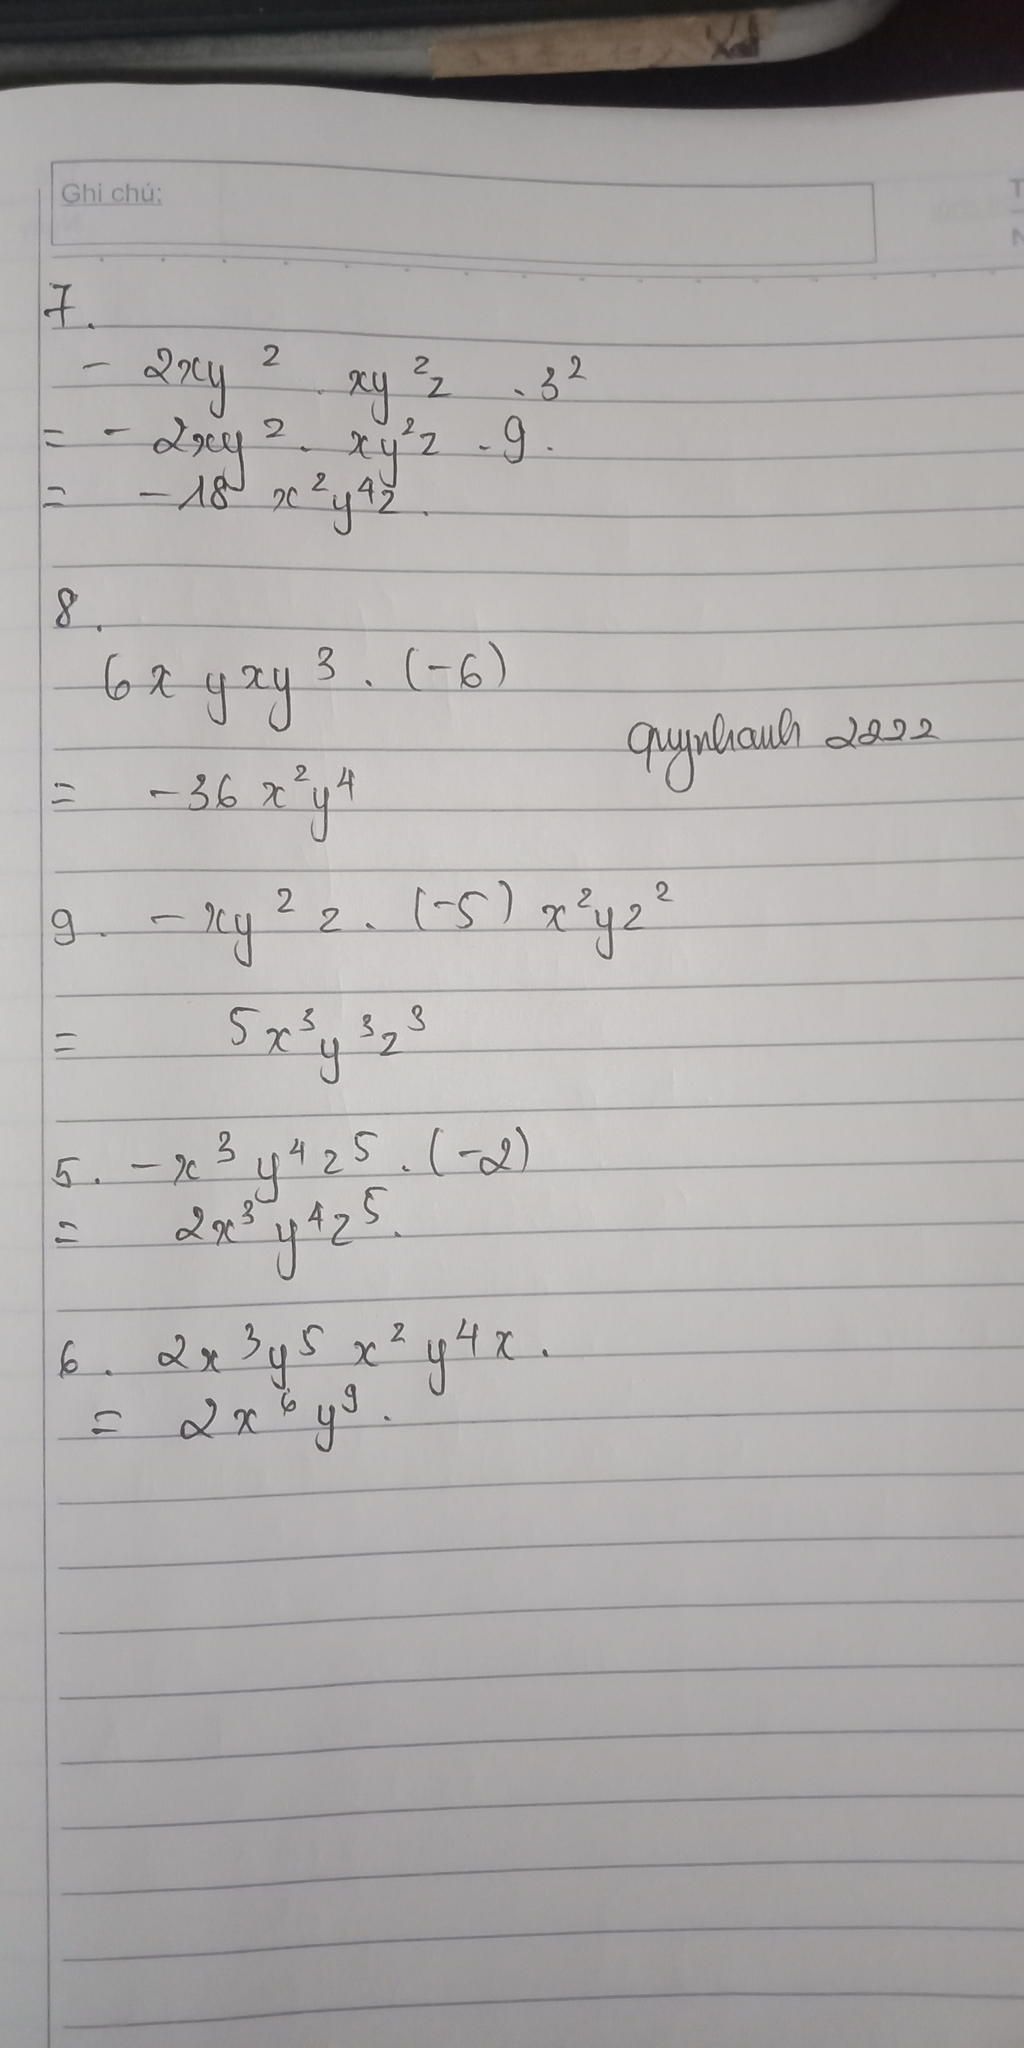 Ghi chú:
7.
- 2xy² . xy²z . 3²
= - 2xy² . xy²z . 9.
= -18 x²y⁴z.
8.
6x yxy³ . (-6)
quynhanh 2222
= -36 x²y⁴
9. - xy² z . (-5) x²yz²
= 5x³y³z³
5. -x³ y⁴z⁵ . (-2)
= 2x³ y⁴z⁵.
6. 2x³y⁵ x² y⁴x.
= 2x⁶ y⁹.